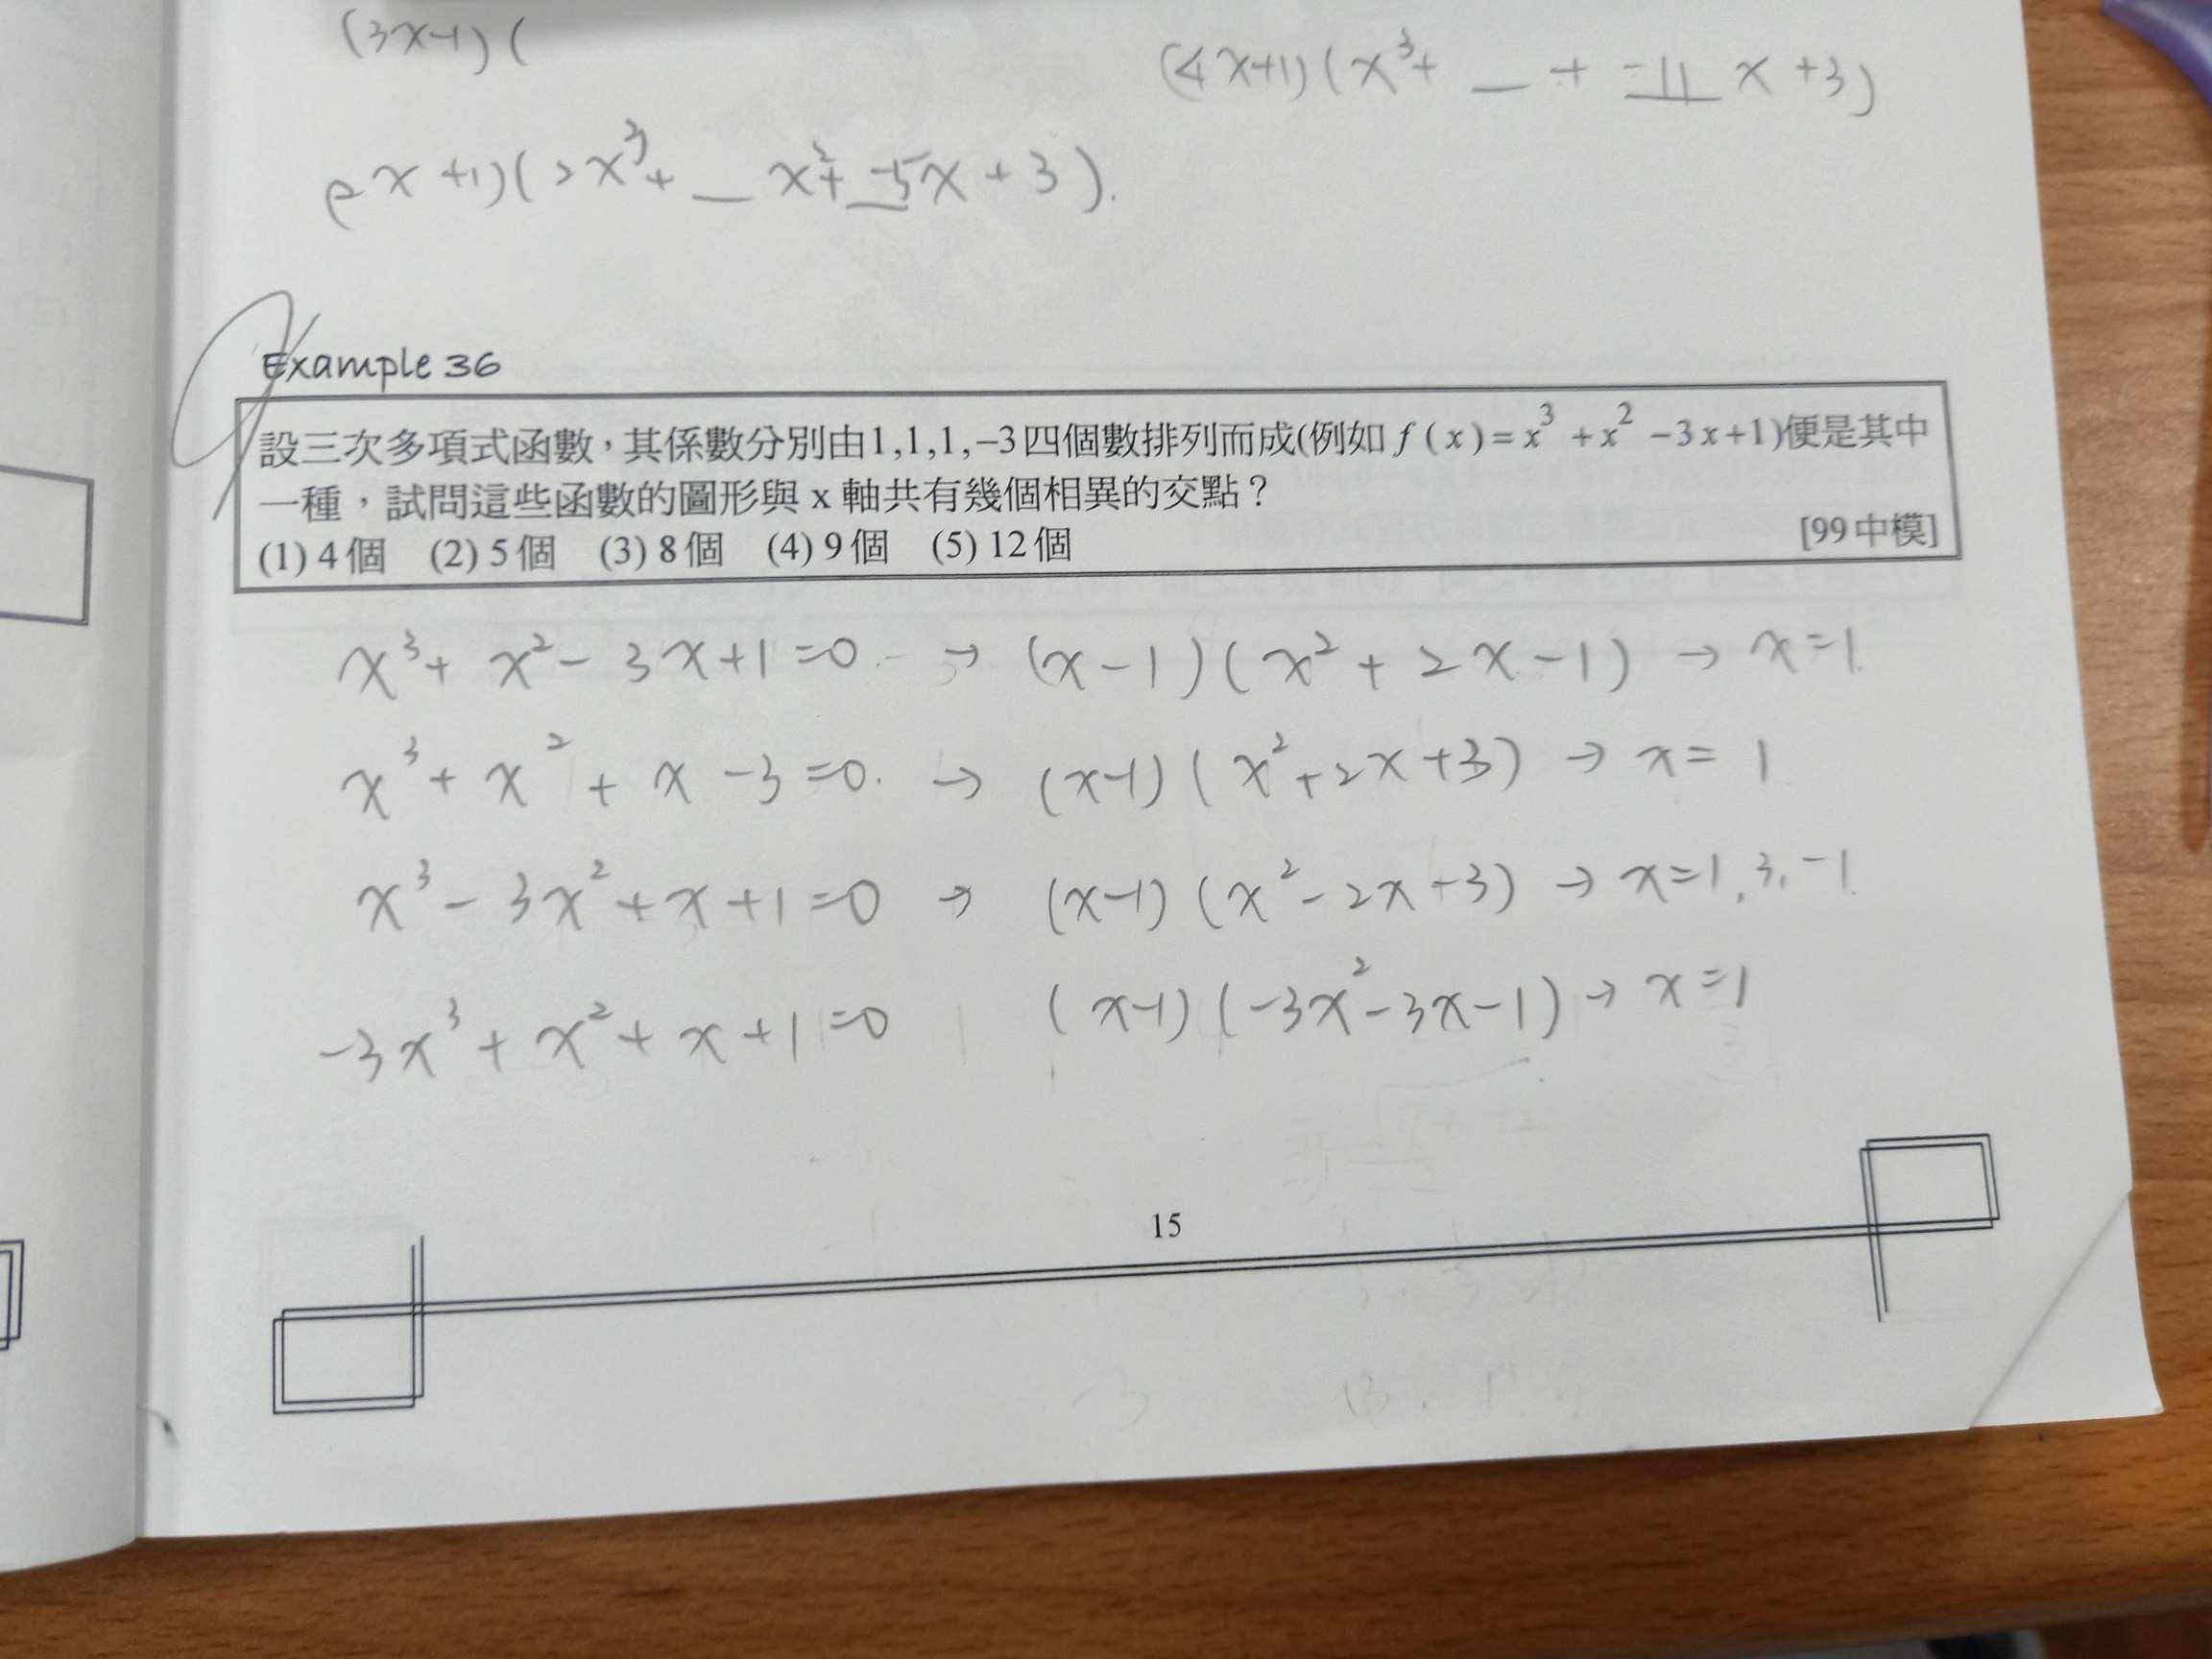 (3x-1)(
(4x+1)(x³+ _ + -11 x +3)
x+1)(2x³+ _ x²+ -5x + 3).
Example 36
設三次多項式函數，其係數分別由1,1,1,−3四個數排列而成(例如 f(x)=x³+x²−3x+1)便是其中
一種，試問這些函數的圖形與 x 軸共有幾個相異的交點？
(1) 4個 (2) 5個 (3) 8個 (4) 9個 (5) 12個 [99中模]
x³+ x²- 3x+1=0 → (x-1)(x²+2x-1) → x=1
x³+ x² + x -3=0. → (x-1)(x²+2x+3) → x= 1
x³- 3x²+x+1=0 → (x-1)(x²-2x+3) → x=1, 3, -1
-3x³+ x²+ x+1=0 (x-1)(-3x²-3x-1) → x=1
15